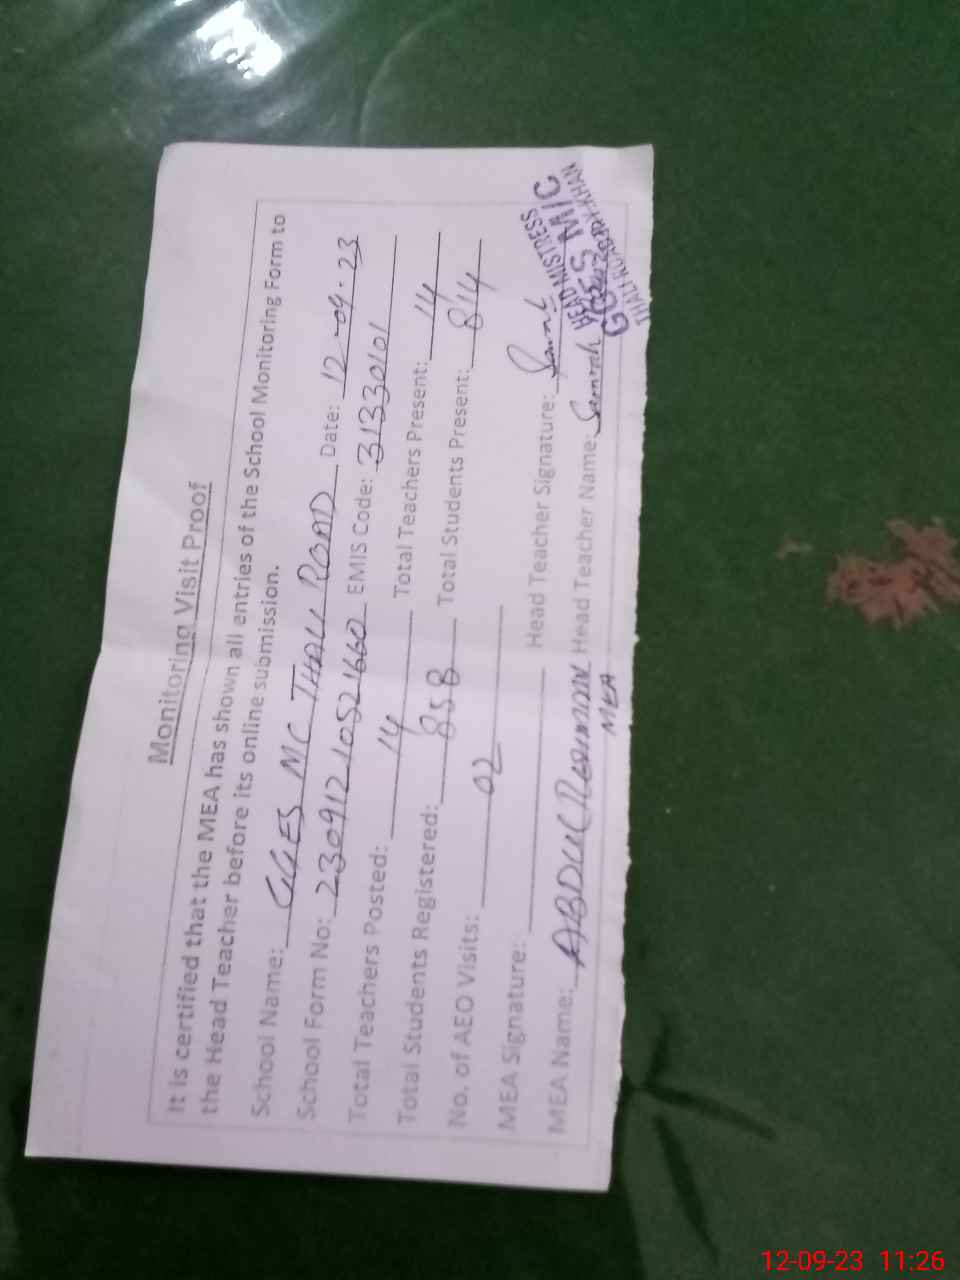 Monitoring Visit Proof
It is certified that the MEA has shown all entries of the School Monitoring Form to
the Head Teacher before its online submission.
School Name: GGES MC THALI ROAD Date: 12-09-23
School Form No: 23091210521660 EMIS Code: 31330101
Total Teachers Posted: 14 Total Teachers Present: 14
Total Students Registered: 858 Total Students Present: 814
No. of AEO Visits: 02
MEA Signature: Head Teacher Signature:
MEA Name: ABDUL Rehman Head Teacher Name: Samrah
MEA
HEAD MISTRESS
GGES M/C
THALI ROAD R.Y.KHAN
12-09-23 11:26